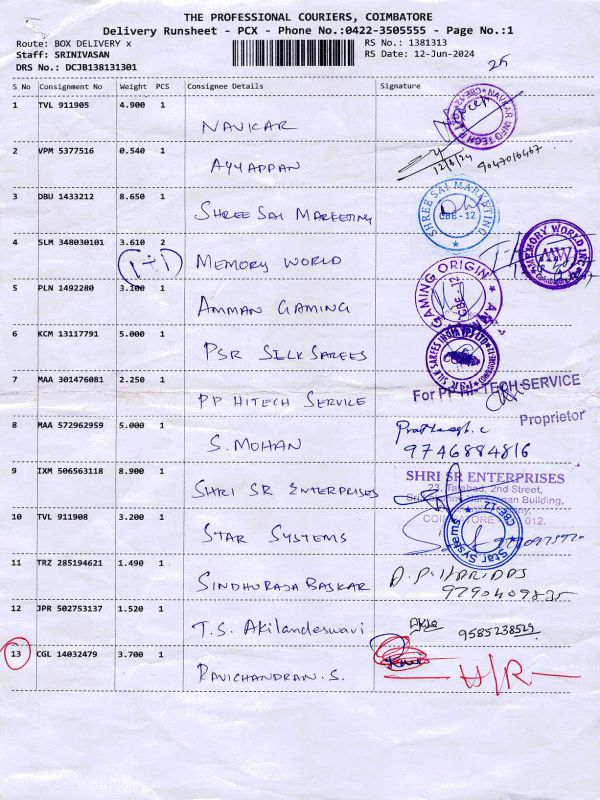 THE PROFESSIONAL COURIERS, COIMBATORE
Delivery Runsheet - PCX - Phone No.:0422-3505555 - Page No.:1
Route: BOX DELIVERY x
RS No.: 1381313
Staff: SRINIVASAN
RS Date: 12-Jun-2024
DRS No.: DCJB138131301
25
S No Consignment No Weight PCS Consignee Details Signature
1 TVL 911905 4.900 1 NAVKAR
NAVKAR INFOTECH
CBE-12
2 VPM 5377516 0.540 1 AYYAPPAN
12/6/24
3 DBU 1433212 8.650 1 SHREE SAI MARKETING
SHREE SAI MARKETING
CBE-12
4 SLM 348030101 3.610 2 MEMORY WORLD
1+1
MEMORY WORLD INC
MW
5 PLN 1492280 3.100 1 AMMAN GAMING
GAMING ORIGIN
CBE-12
6 KCM 13117791 5.000 1 PSR SILK SAREES
7 MAA 301476081 2.250 1 PP HITECH SERVICE
For PP HI-TECH SERVICE
Proprietor
8 MAA 572962959 5.000 1 S. MOHAN
9746884816
9 IXM 506563118 8.900 1 SHRI SR ENTERPRISES
SHRI SR ENTERPRISES
2nd Street,
Building,
COIMBATORE 012.
10 TVL 911908 3.200 1 STAR SYSTEMS
Star Systems
CBE-12
11 TRZ 285194621 1.490 1 SINDHURAJA BASKAR
D.P. HARIDAS
12 JPR 502753137 1.520 1 T.S. Akilandeswari
Akila
9585238529
13 CGL 14032479 3.700 1 RAVICHANDRAN. S.
H/R